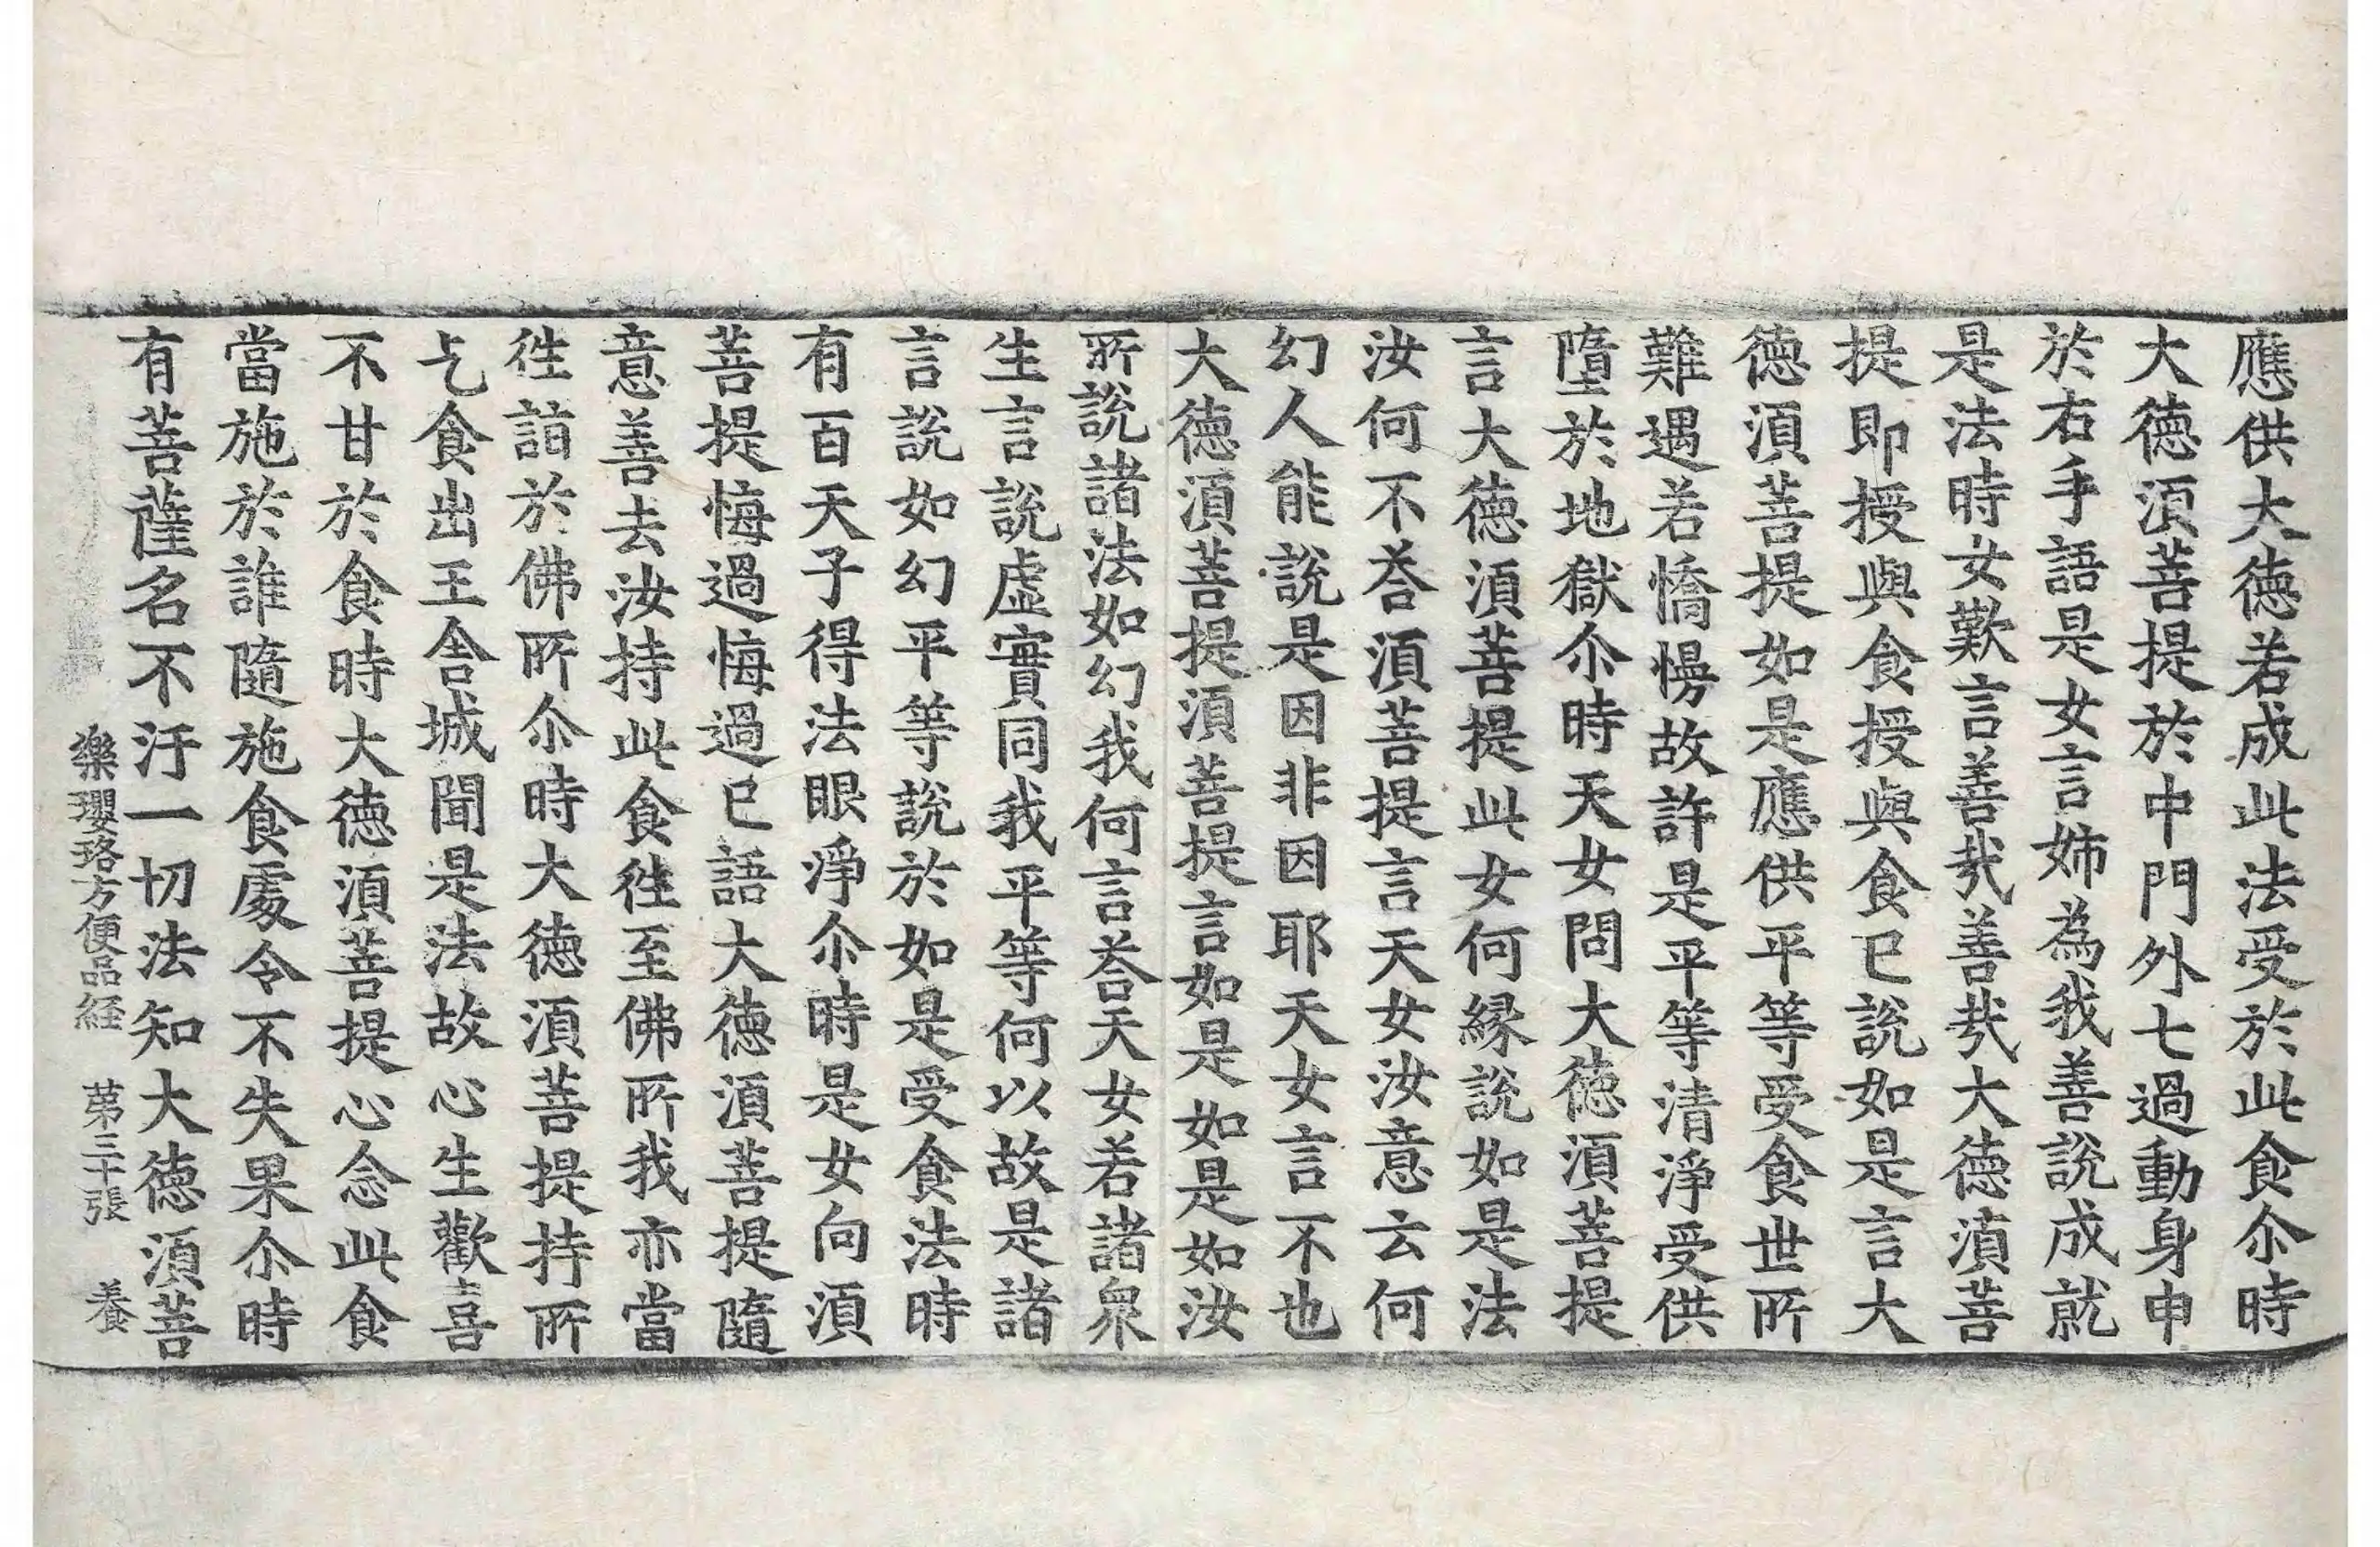 應供大徳若成此法受於此食尒時
大徳湏菩提於中門外七過動身申
於右手語是女言姉為我善說成就
是法時女歎言善㢤善㢤大徳湏菩
提即授與食授與食已說如是言大
徳湏菩提如是應供平等受食世所
難遇若憍慢故許是平等清淨受供
墮於地獄尒時天女問大徳湏菩提
言大徳湏菩提此女何縁說如是法
汝何不荅湏菩提言天女汝意云何
幻人能說是因非因耶天女言不也
大徳湏菩提湏菩提言如是如是如汝
所說諸法如幻我何言荅天女若諸衆
生言說虛實同我平等何以故是諸
言說如幻平等說於如是受食法時
有百天子得法眼淨尒時是女向湏
菩提悔過悔過已語大徳湏菩提隨
意善去汝持此食徃至佛所我亦當
徃詣於佛所尒時大徳湏菩提持所
乞食出王舎城聞是法故心生歡喜
不甘於食時大徳湏菩提心念此食
當施於誰隨施食處令不失果尒時
有菩薩名不汙一切法知大徳湏菩
樂瓔珞方便品経 第三十張 養